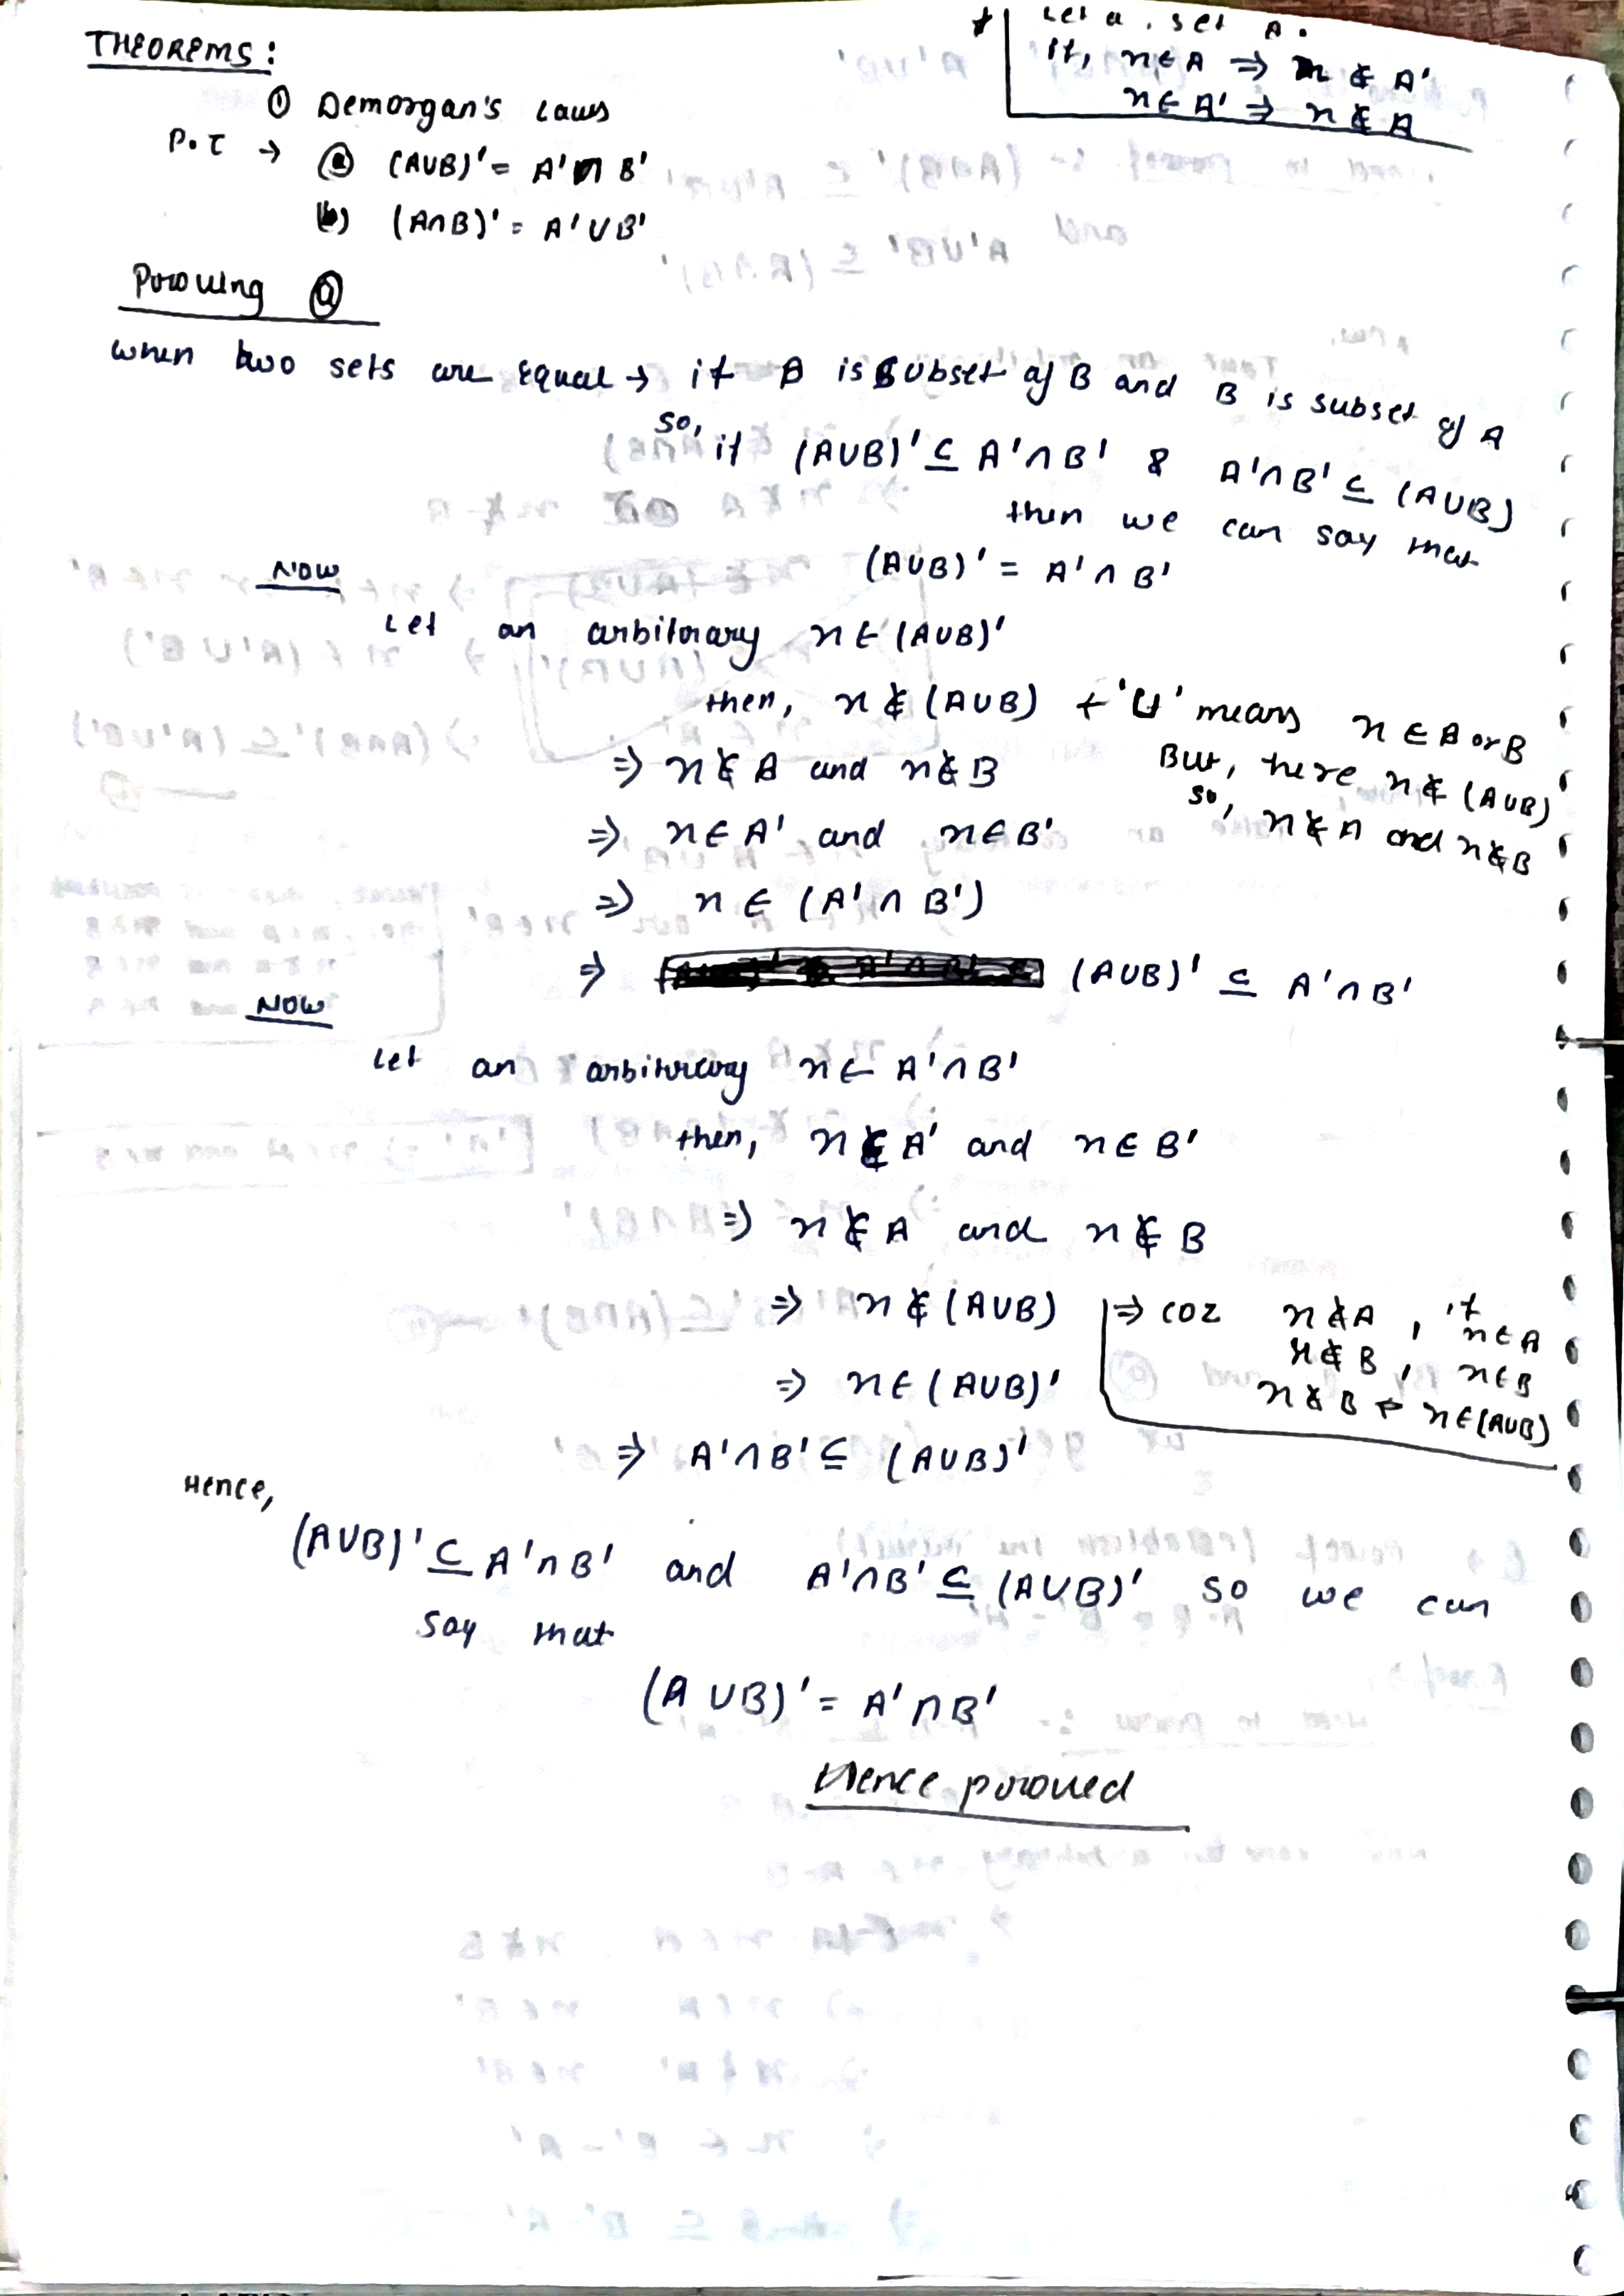 THEOREMS:
* Let a set A.
If, x ∈ A ⇒ x ∉ A'
x ∈ A' ⇒ x ∉ A
① Demorgan's Laws
P.T → ⓐ (A∪B)' = A' ∩ B'
(b) (A∩B)' = A' ∪ B'
Proving ⓐ
when two sets are equal → if A is subset of B and B is subset of A
so, if (A∪B)' ⊆ A'∩B' & A'∩B' ⊆ (A∪B)
then we can say that
(A∪B)' = A' ∩ B'
NOW
Let an arbitrary x ∈ (A∪B)'
then, x ∉ (A∪B) + '∪' means x ∈ A or B
But, here x ∉ (A∪B)
so, x ∉ A and x ∉ B
⇒ x ∉ A and x ∉ B
⇒ x ∈ A' and x ∈ B'
⇒ x ∈ (A' ∩ B')
⇒ (A∪B)' ⊆ A'∩B'
NOW
Let an arbitrary x ∈ A'∩B'
then, x ∈ A' and x ∈ B'
⇒ x ∉ A and x ∉ B
⇒ x ∉ (A∪B)
⇒ coz x ∉ A, if x ∈ A
x ∉ B, x ∈ B
x ∉ B ⇒ x ∈ (A∪B)
⇒ x ∈ (A∪B)'
⇒ A'∩B' ⊆ (A∪B)'
Hence,
(A∪B)' ⊆ A'∩B' and A'∩B' ⊆ (A∪B)' so we can
say that
(A∪B)' = A'∩B'
Hence proved